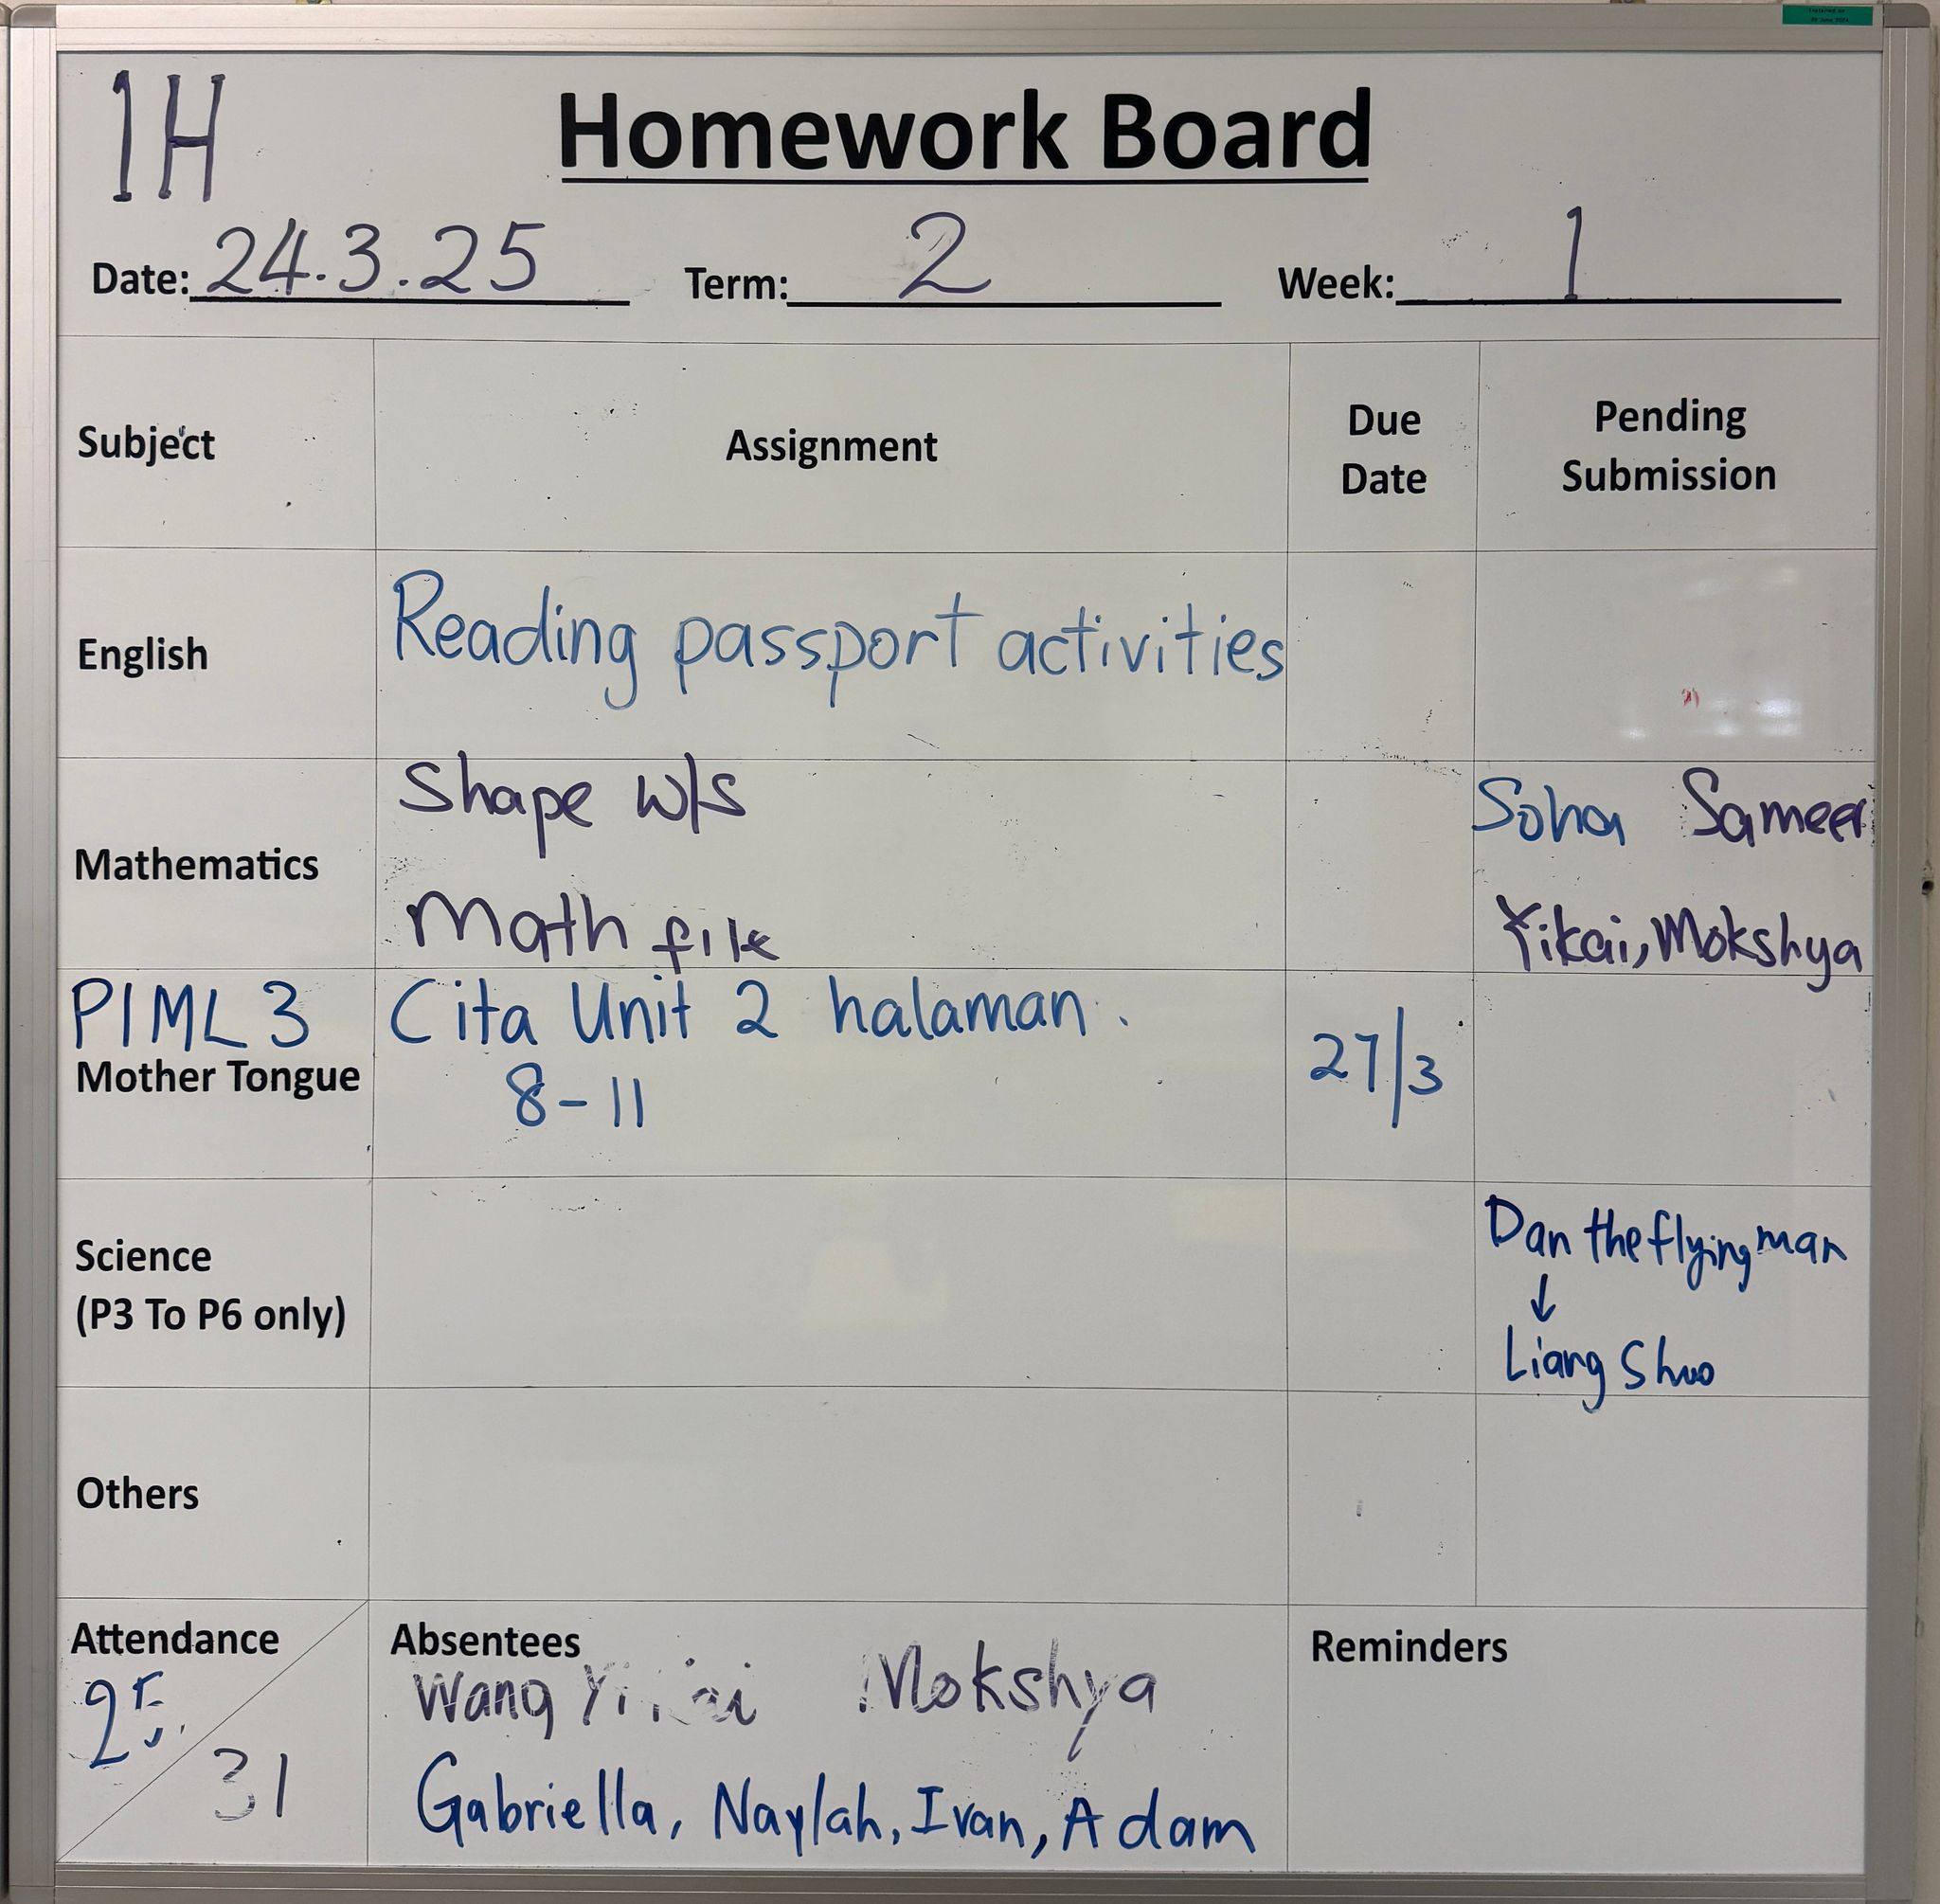 1H
Homework Board
Date: 24.3.25 Term: 2 Week: 1
Subject Assignment Due Date Pending Submission
English Reading passport activities
Mathematics
Shape w/s
Math file
Soha Sameer
Yikai, Mokshya
PIML 3
Mother Tongue
Cita Unit 2 halaman.
8-11
27/3
Science
(P3 To P6 only)
Dan the flying man
↓
Liang Shuo
Others
Attendance
25
31
Absentees
Wang Mokshya
Gabriella, Naylah, Ivan, Adam
Reminders